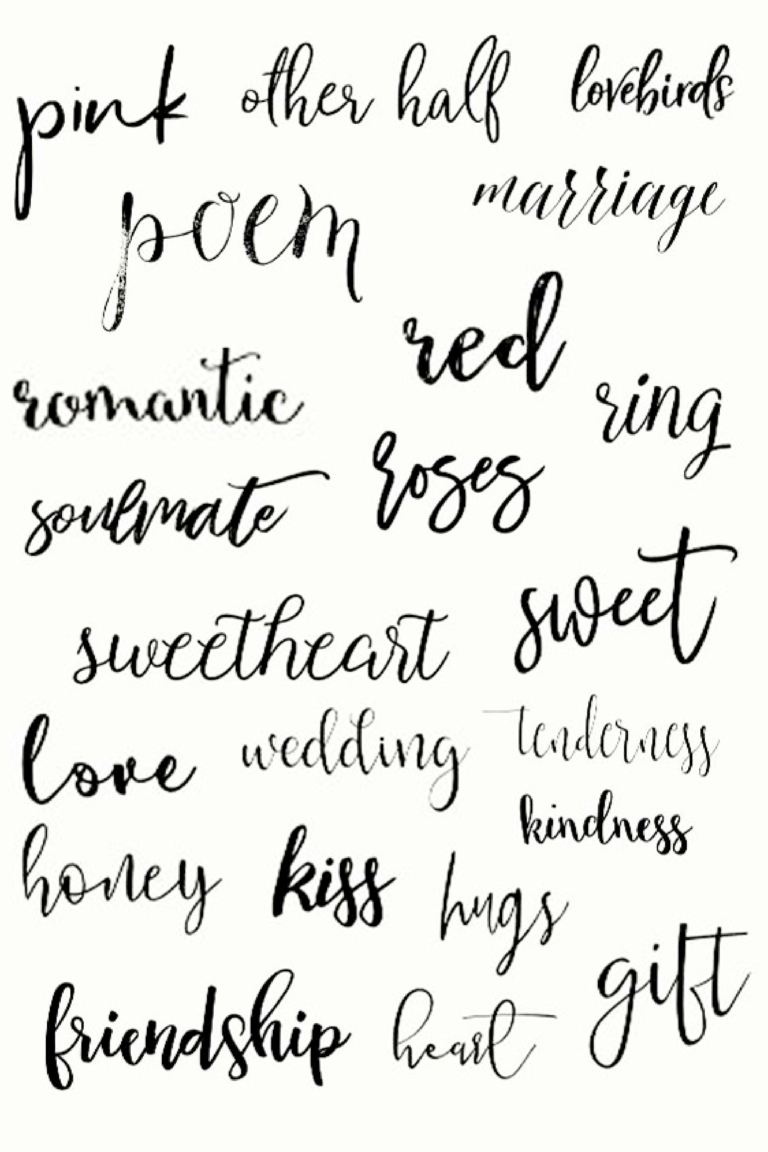 pink other half lovebirds
poem marriage
red
romantic ring
soulmate roses
sweetheart sweet
love wedding tenderness
kindness
honey kiss hugs
friendship heart gift